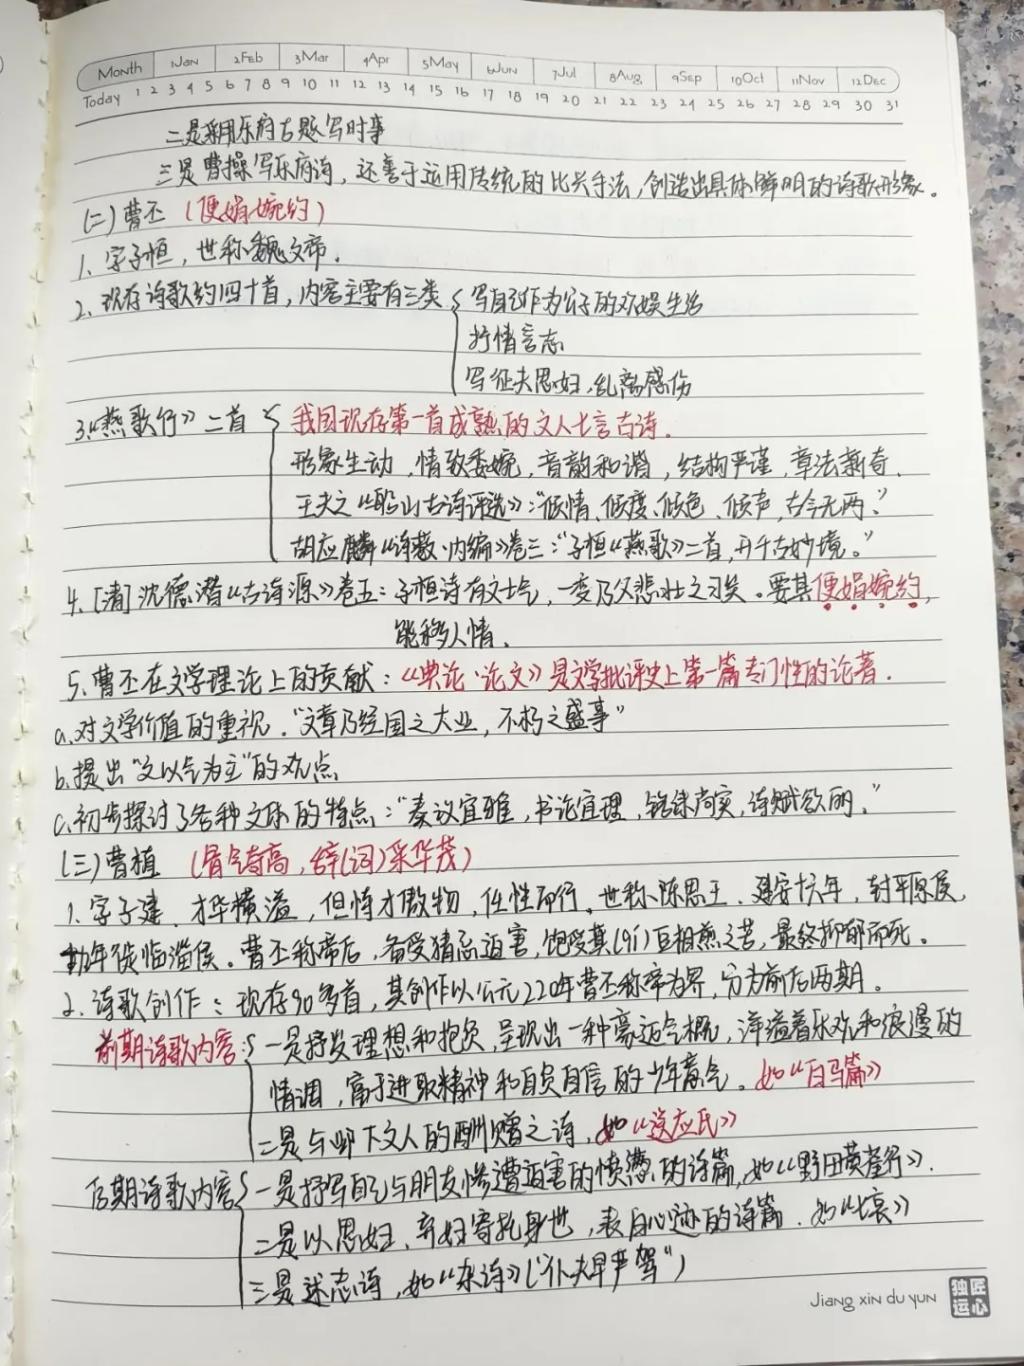 Month 1Jan 2Feb 3Mar 4Apr 5May 6Jun 7Jul 8Aug 9Sep 10Oct 11Nov 12Dec
Today 1 2 3 4 5 6 7 8 9 10 11 12 13 14 15 16 17 18 19 20 21 22 23 24 25 26 27 28 29 30 31
二是采用乐府古题写时事
三是曹操写乐府诗，还善于运用传统的比兴手法，创造出具体鲜明的诗歌形象。
(二)曹丕（便娟婉约）
1、字子恒，世称魏文帝.
2、现存诗歌约四十首，内容主要有三类 写自己作为公子的欢娱生活
抒情言志
写征夫思妇、乱离感伤
3.《燕歌行》二首 我国现存第一首成熟的文人七言古诗.
形象生动，情致委婉，音韵和谐，结构严谨，章法新奇.
王夫之《船山古诗评选》："倾情、倾度、倾色、倾声，古今无两."
胡应麟《诗薮·内编》卷三："子恒《燕歌》二首，开千古妙境。"
4.［清］沈德潜《古诗源》卷五：子恒诗有文士气，一变乃父悲壮之习矣。要其便娟婉约，
能移人情.
5.曹丕在文学理论上的贡献：《典论·论文》是文学批评史上第一篇专门性的论著.
a.对文学价值的重视."文章乃经国之大业，不朽之盛事"
b.提出"文以气为主"的观点
c.初步探讨了各种文体的特点："奏议宜雅，书论宜理，铭诔尚实，诗赋欲丽."
(三)曹植 （骨气奇高，辞(词)采华茂）
1.字子建、才华横溢，但恃才傲物，任性而行.世称陈思王.建安十六年，封平原侯，
年徙临淄侯。曹丕称帝后，备受猜忌迫害，饱受其(jī)豆相煎之苦，最终抑郁而死。
2.诗歌创作：现存90多首，其创作以公元220年曹丕称帝为界，分为前后两期.
前期诗歌内容： 一是抒发理想和抱负，呈现出一种豪迈气概，洋溢着乐观和浪漫的
情调，富于进取精神和自负自信的少年意气。如《白马篇》
二是与邺下文人的酬赠之诗，如《送应氏》
后期诗歌内容 一是抒写自己与朋友惨遭迫害的愤懑的诗篇，如《野田黄雀行》.
二是以思妇、弃妇寄托身世，表白心迹的诗篇.如《七哀》
三是述志诗，如《杂诗》("仆夫早严驾")
Jiang xin du yun 独运匠心